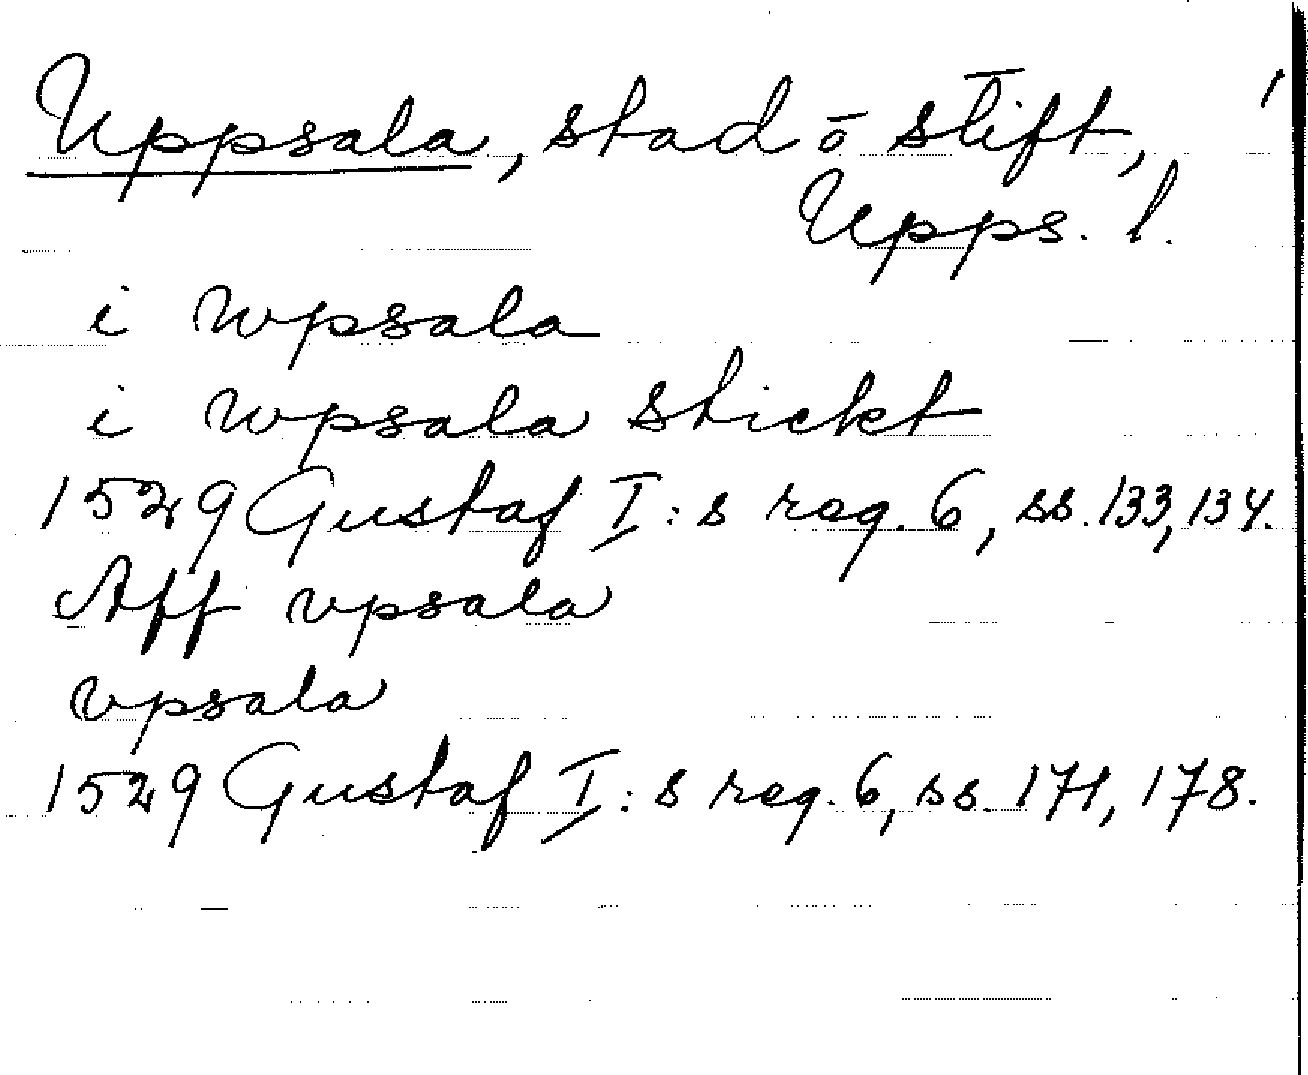 Uppsala, stad ō stift,
Upps. l.
i wpsala
i wpsala stickt
1529 Gustaf I:s reg. 6, ss. 133, 134.
Aff vpsala
vpsala
1529 Gustaf I:s reg. 6, ss. 171, 178.